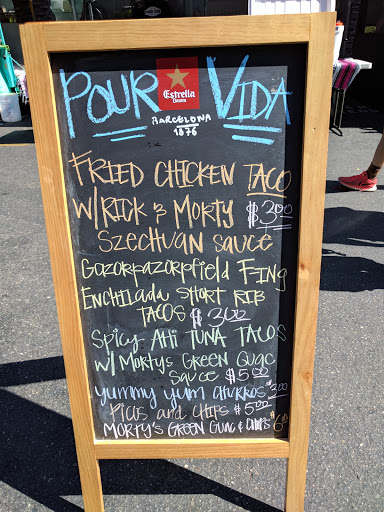 POUR VIDA
Estrella
Damm
BARCELONA
1876
FRIED CHICKEN TACO
W/ RICK & MORTY $3.00
SZECHUAN SAUCE
Gozorpazorpfield FING
ENCHILADA SHORT RIB
TACOS $3.00
SPICY AHI TUNA TACOS
W/ MORTYS GREEN GUAC
SAUCE $5.00
yummy yum CHURROS $3.00
PICOS AND CHIPS $5.00
MORTY'S GREEN GUAC & CHIPS $6.00